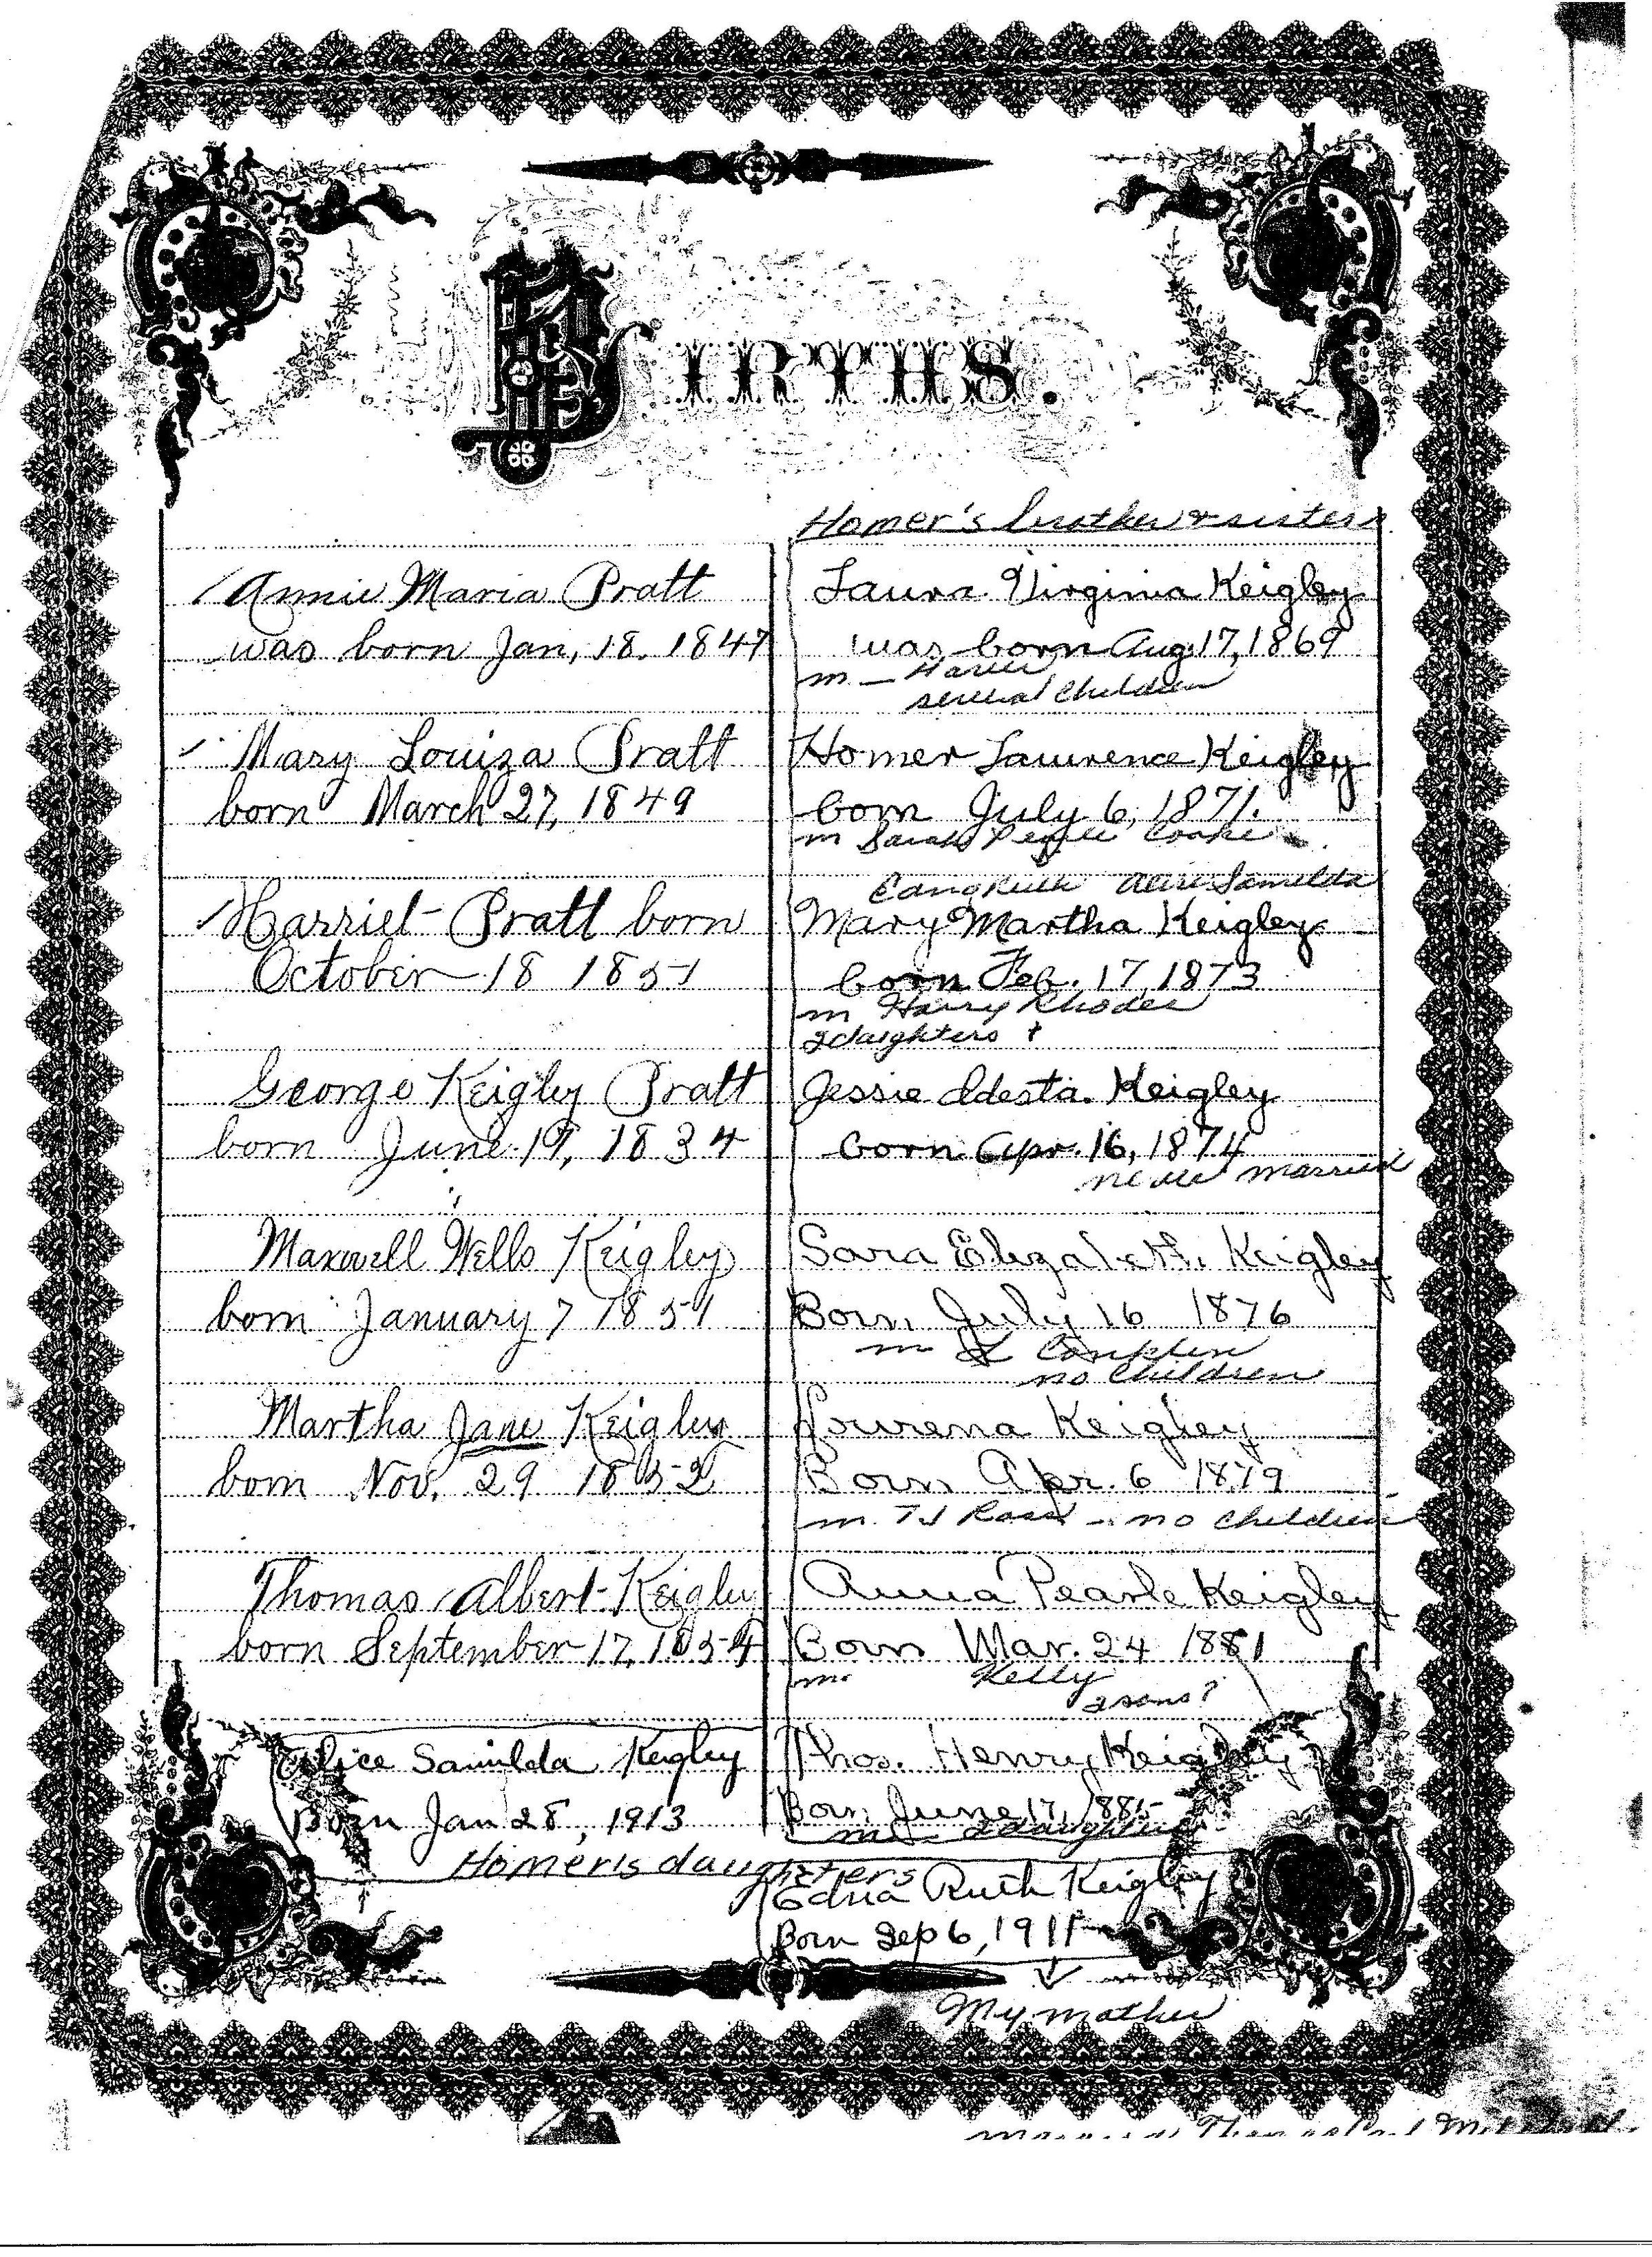 BIRTHS.
Annie Maria Pratt
was born Jan, 18. 1847
Mary Louiza Pratt
born March 27, 1849
Harriet Pratt born
October 18 1851
George Keigly Pratt
born June 19, 1834
Maxwell Wells Keigley
born January 7 1851
Martha Jane Keigley
born Nov. 29 1852
Thomas Albert Keigley
born September 17, 1854
Alice Samilda Keigley
Born Jan 28, 1913
Homer's daughters
Homer's brother & sisters
Laura Virginia Keigley
was born Aug. 17, 1869
m —
several children
Homer Lawrence Keigley
born July 6, 1871.
m Sarah Cooke
Ruth Alice Samilda
Mary Martha Keigley
born Feb. 17, 1873
m Harry Rhodes
2 daughters
Jessie Idesta Keigley
born Apr. 16, 1874
never married
Sara Elizabeth Keigley
Born July 16 1876
m Conklin
no children
Lourena Keigley
Born Apr. 6 1879
m. TJ Ross - no children
Anna Pearle Keigley
Born Mar. 24 1881
m. Kelly
2 sons?
Thos. Henry Keigley
Born June 17, 1885
m — 2 daughters
Edna Ruth Keigley
Born Sep 6, 1911
My mother